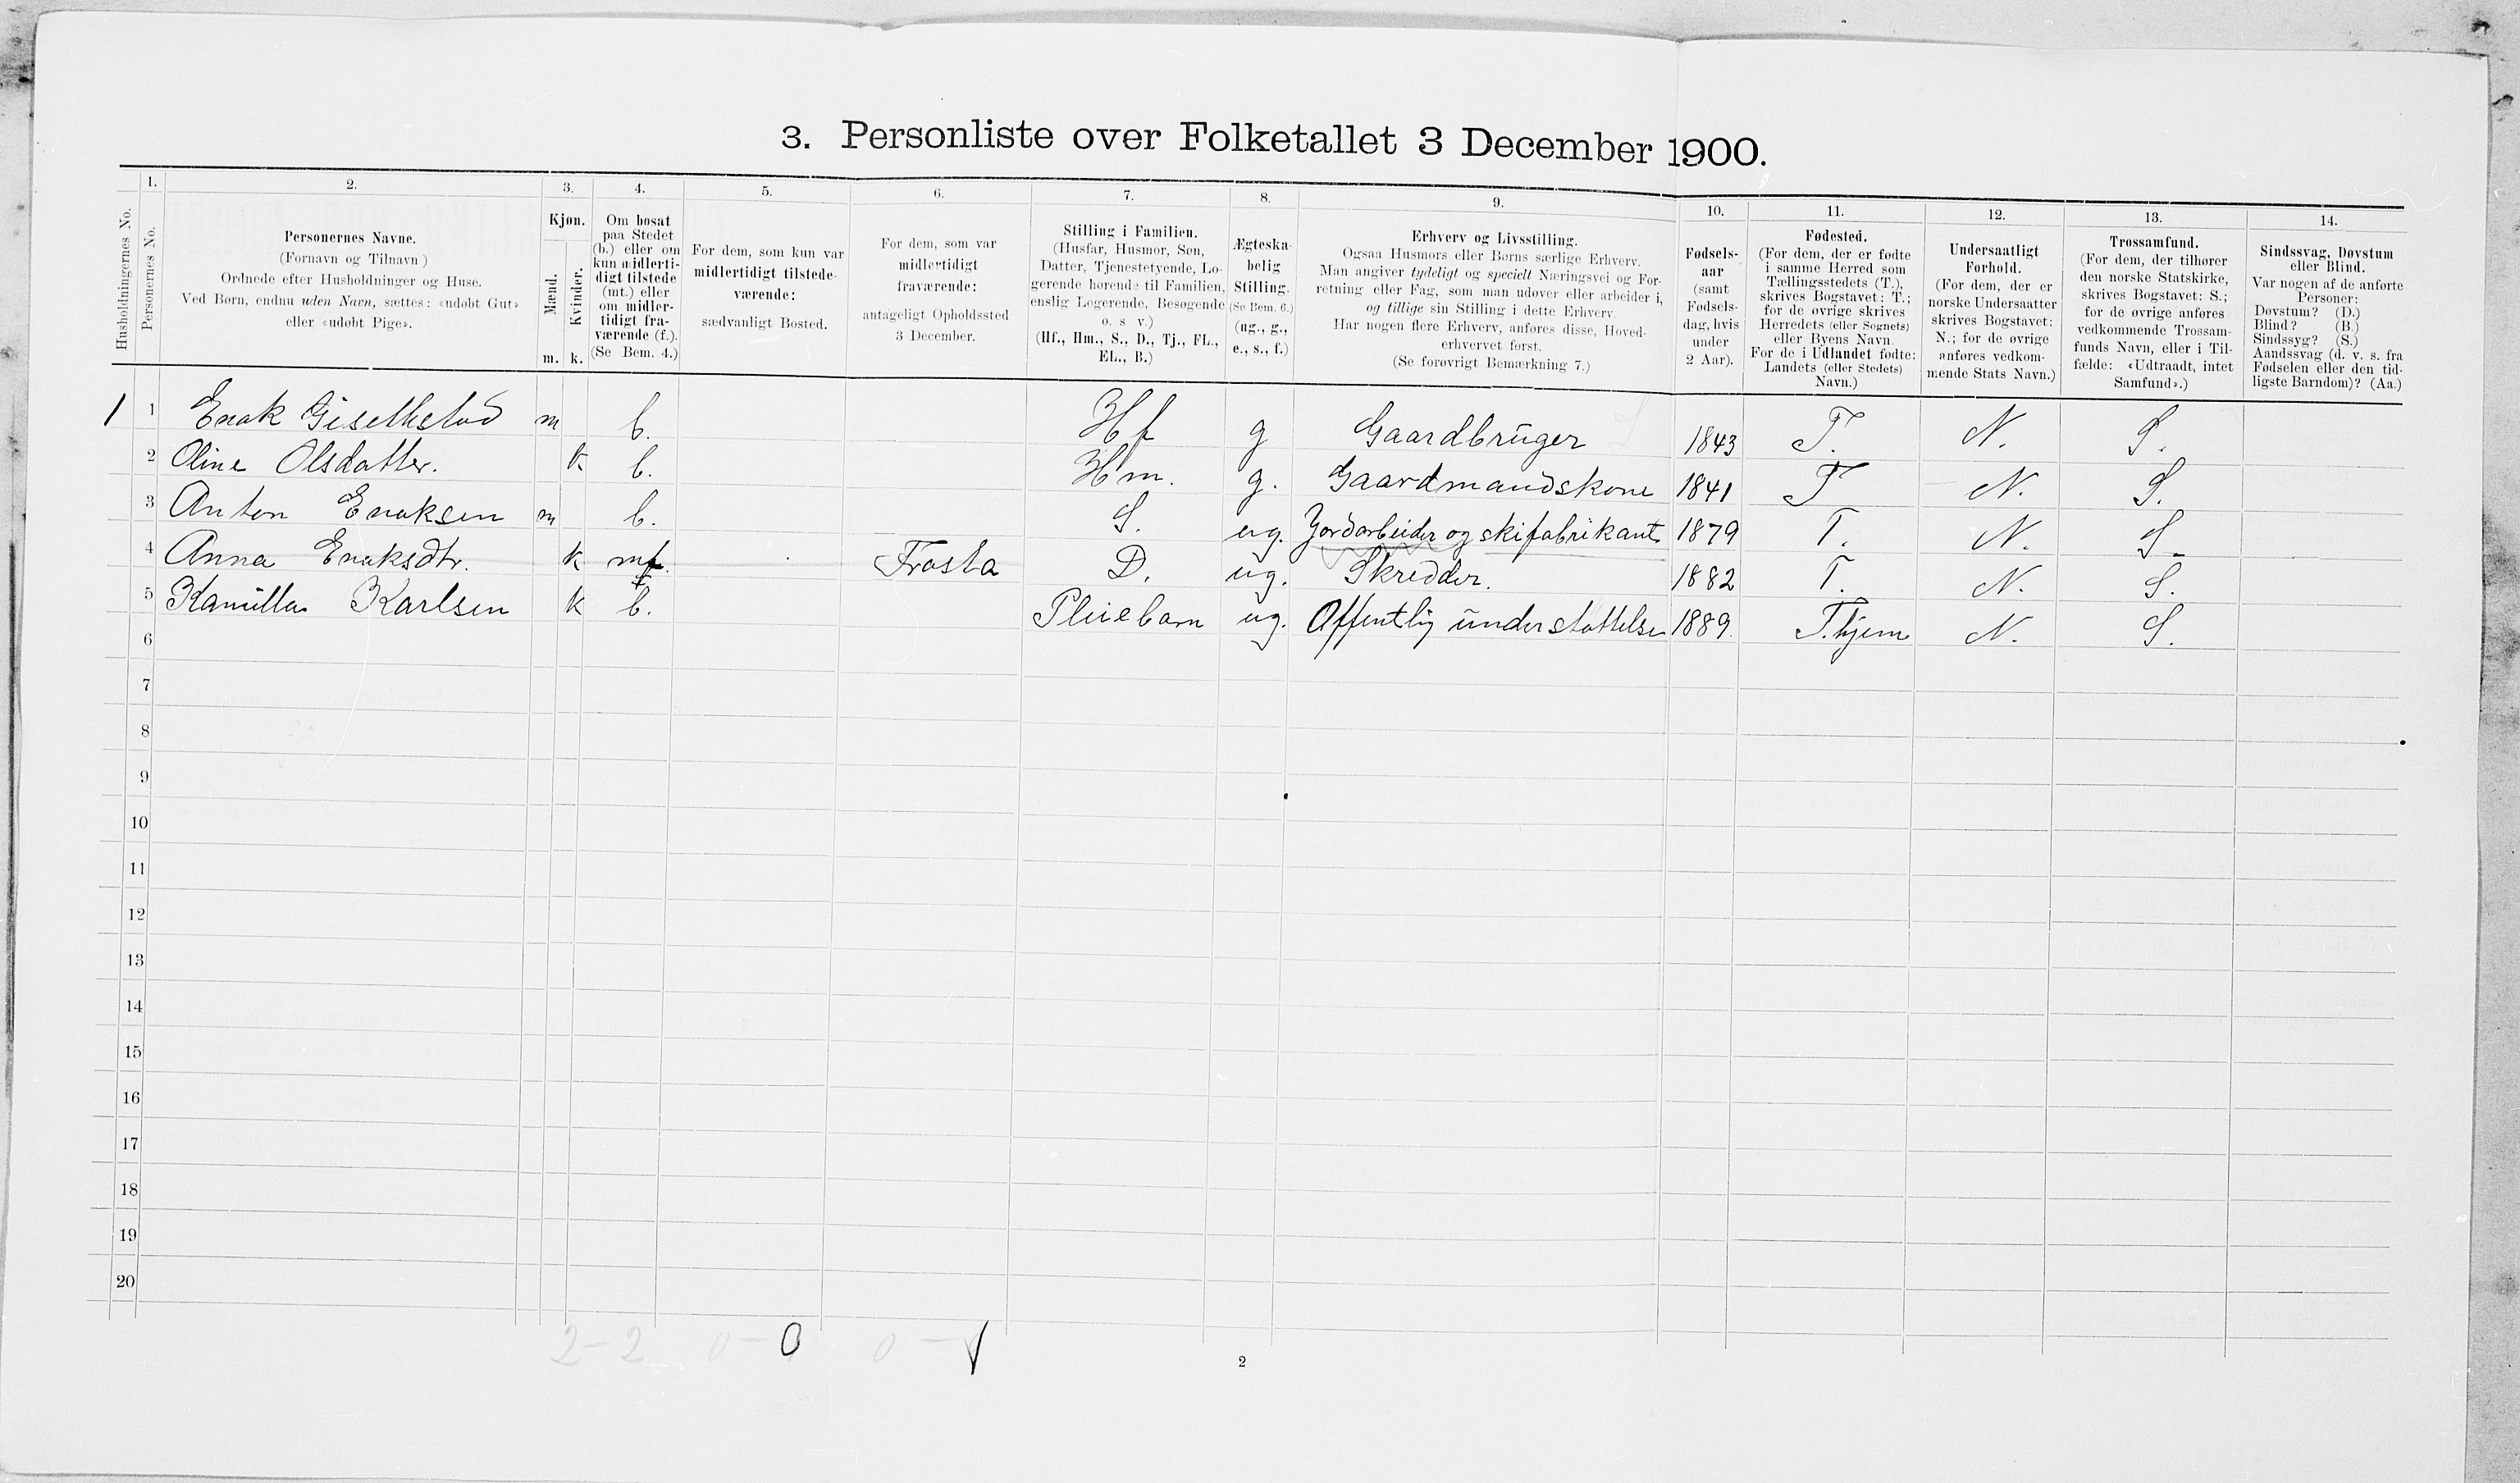 3. Personliste over Folketallet 3 December 1900.
1. 2. 3. 4. 5. 6. 7. 8. 9. 10. 11. 12. 13. 14.
Husholdningernes No.
Personernes No.
Personernes Navne.
(Fornavn og Tilnavn)
Ordnede efter Husholdninger og Huse.
Ved Børn, endnu uden Navn, sættes: «udøbt Gut»
eller «udøbt Pige».
Kjøn.
Mænd.
Kvinder.
m. k.
Om bosat
paa Stedet
(b.) eller om
kun midlerti-
digt tilstede
(mt.) eller
om midler-
tidigt fra-
værende (f.).
(Se Bem. 4.)
For dem, som kun var
midlertidigt tilstede-
værende:
sædvanligt Bosted.
For dem, som var
midlertidigt
fraværende:
antageligt Opholdssted
3 December.
Stilling i Familien.
(Husfar, Husmor, Søn,
Datter, Tjenestetyende, Lo-
gerende hørende til Familien,
enslig Logerende, Besøgende
o. s v.)
(Hf., Hm., S., D., Tj., FL.,
EL., B.)
Ægteska-
belig
Stilling.
(Se Bem. 6.)
(ug., g.,
e., s., f.)
Erhverv og Livsstilling.
Ogsaa Husmors eller Børns særlige Erhverv.
Man angiver tydeligt og specielt Næringsvei og For-
retning eller Fag, som man udøver eller arbeider i,
og tillige sin Stilling i dette Erhverv.
Har nogen flere Erhverv, anføres disse, Hoved-
erhvervet først.
(Se forøvrigt Bemærkning 7.)
Fødsels-
aar
(samt
Fødsels-
dag, hvis
under
2 Aar).
Fødested.
(For dem, der er fødte
i samme Herred som
Tællingsstedets (T.),
skrives Bogstavet: T.;
for de øvrige skrives
Herredets (eller Sognets)
eller Byens Navn.
For de i Udlandet fødte:
Landets (eller Stedets)
Navn.)
Undersaatligt
Forhold.
(For dem, der er
norske Undersaatter
skrives Bogstavet:
N.; for de øvrige
anføres vedkom-
mende Stats Navn.)
Trossamfund.
(For dem, der tilhører
den norske Statskirke,
skrives Bogstavet: S.;
for de øvrige anføres
vedkommende Trossam-
funds Navn, eller i Til-
fælde: «Udtraadt, intet
Samfund».)
Sindssvag, Døvstum
eller Blind.
Var nogen af de anførte
Personer:
Døvstum? (D.)
Blind? (B.)
Sindssyg? (S.)
Aandssvag (d. v. s. fra
Fødselen eller den tid-
ligste Barndom)? (Aa.)
1 1 Enok Giselhstad m b. Hf g Gaardbruger 1843 T. N. S.
2 Oline Olsdatter. k b. Hm. g. Gaardmandskone 1841 T N. S.
3 Anton Enoksen m b. S. ug. Jordarbeider og skifabrikant 1879 T. N. S.
4 Anna Enoksdtr. k mf. Frosta D. ug. Skredder. 1882 T. N. S.
5 Kamilla Karlsen k b. Pleiebarn ug. Offentlig understøttelse 1889. T.hjem N. S.
6
7
8
9
10
11
12
13
14
15
16
17
18
19
20
2-2 0-0 0-1
2